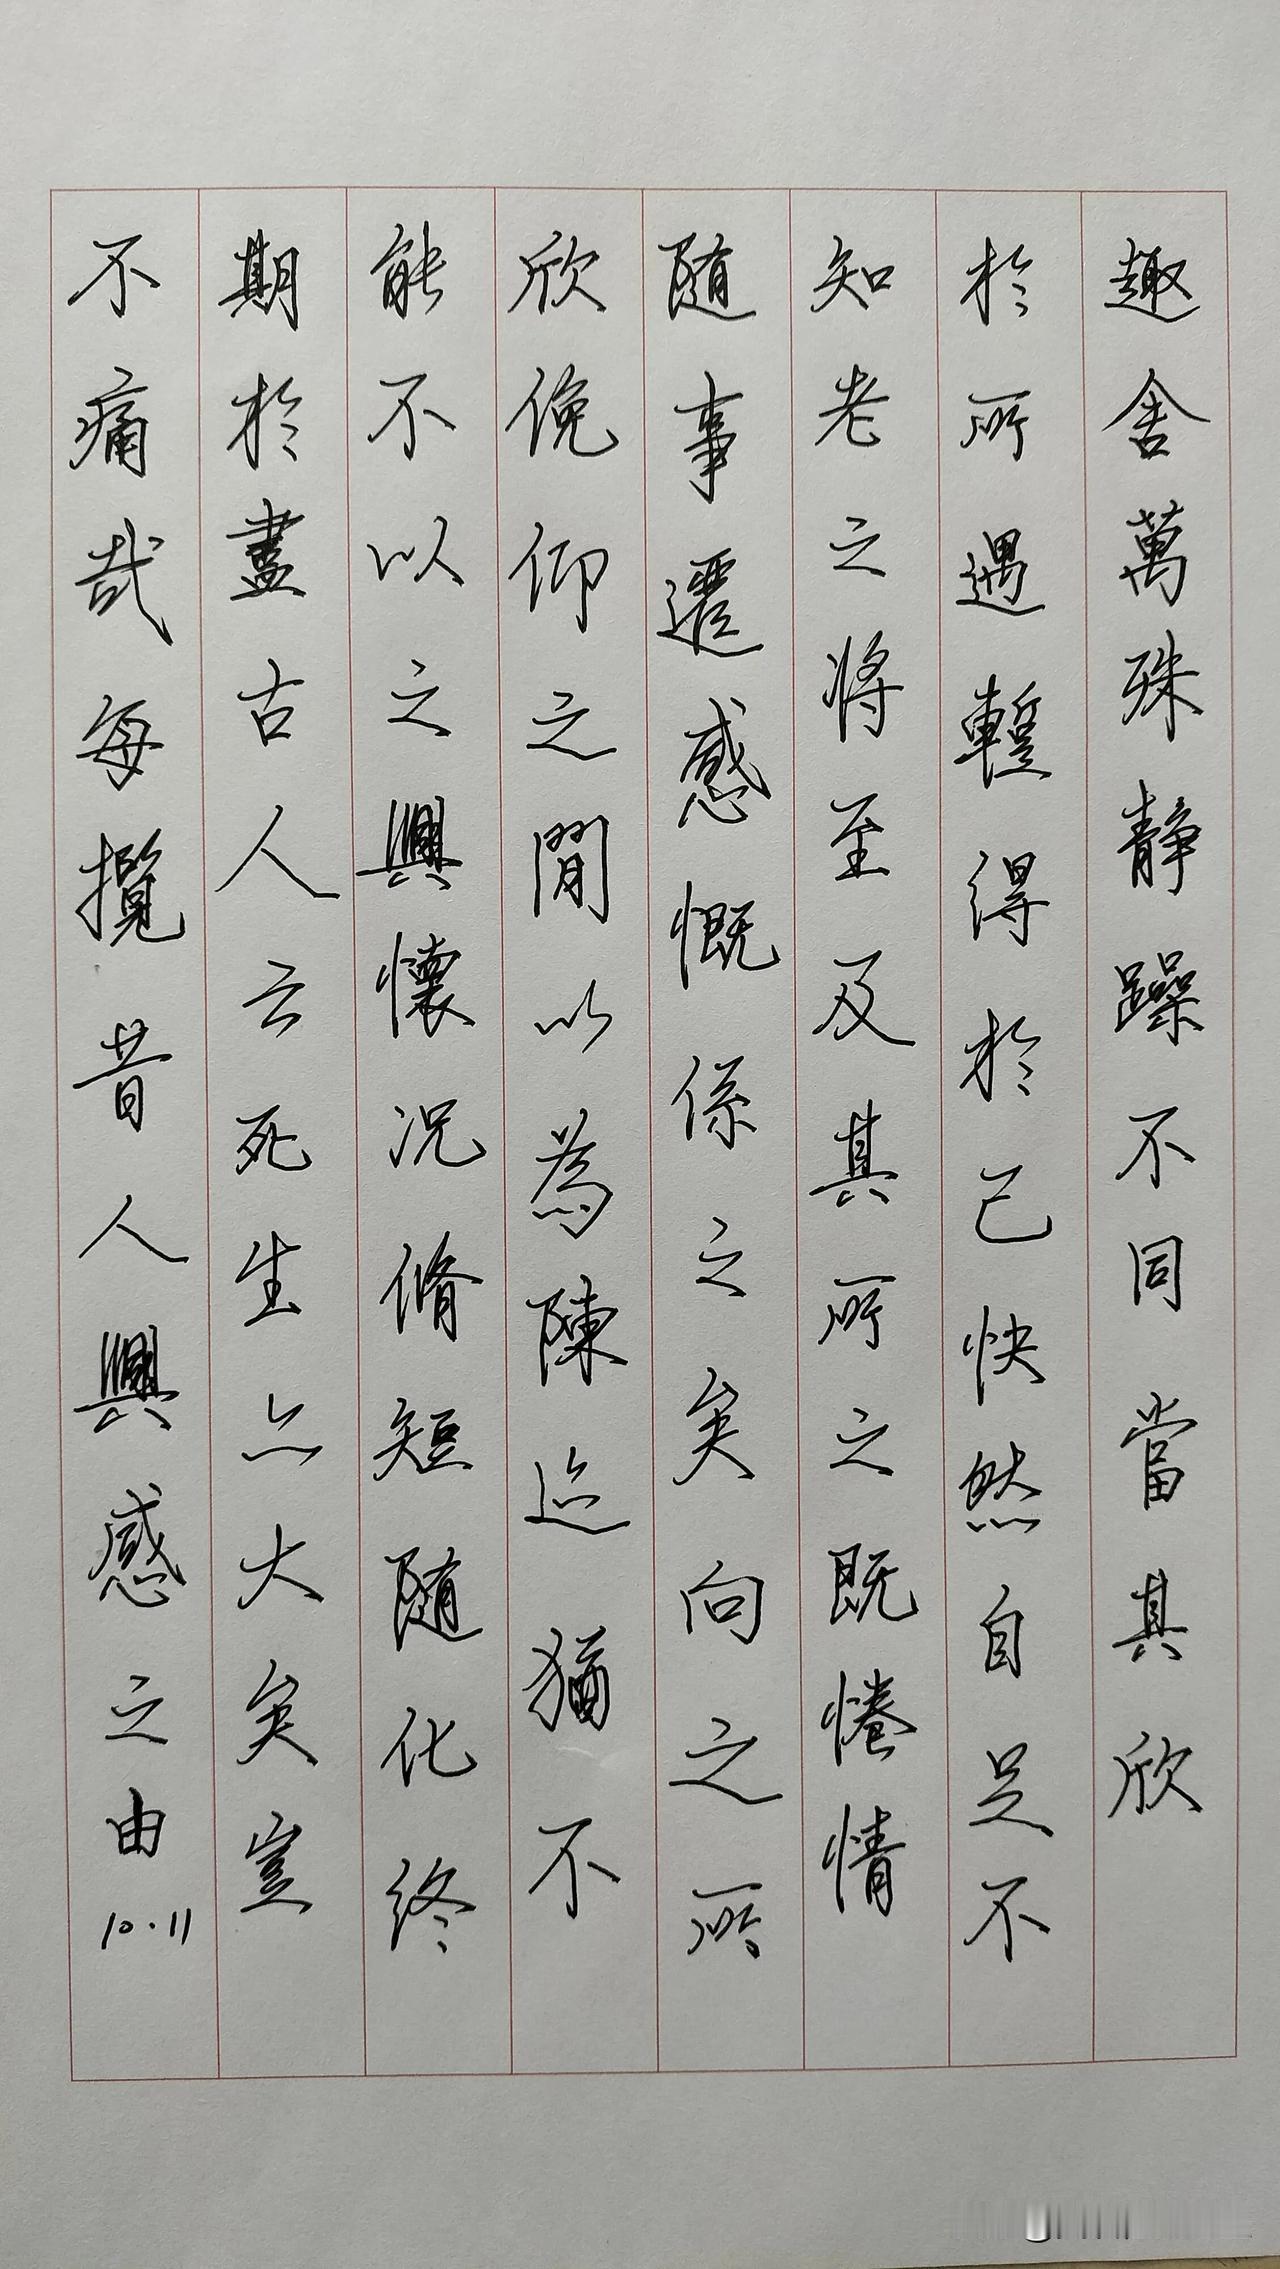 趣舍萬殊静躁不同當其欣
於所遇蹔得於己快然自足不
知老之将至及其所之既惓情
随事遷感慨係之矣向之所
欣俛仰之閒以為陳迹猶不
能不以之興懷况脩短随化終
期於盡古人云死生亦大矣豈
不痛哉每攬昔人興感之由
10.11